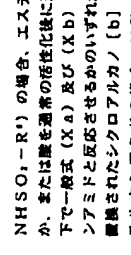 NHSO₂－R⁴) の場合、エステ
か、または酸を通常の活性化後に
下で一般式 (Xa) 及び (Xb)
ンアミドと反応させるかのいずれ
置換されたシクロアルカノ [b]